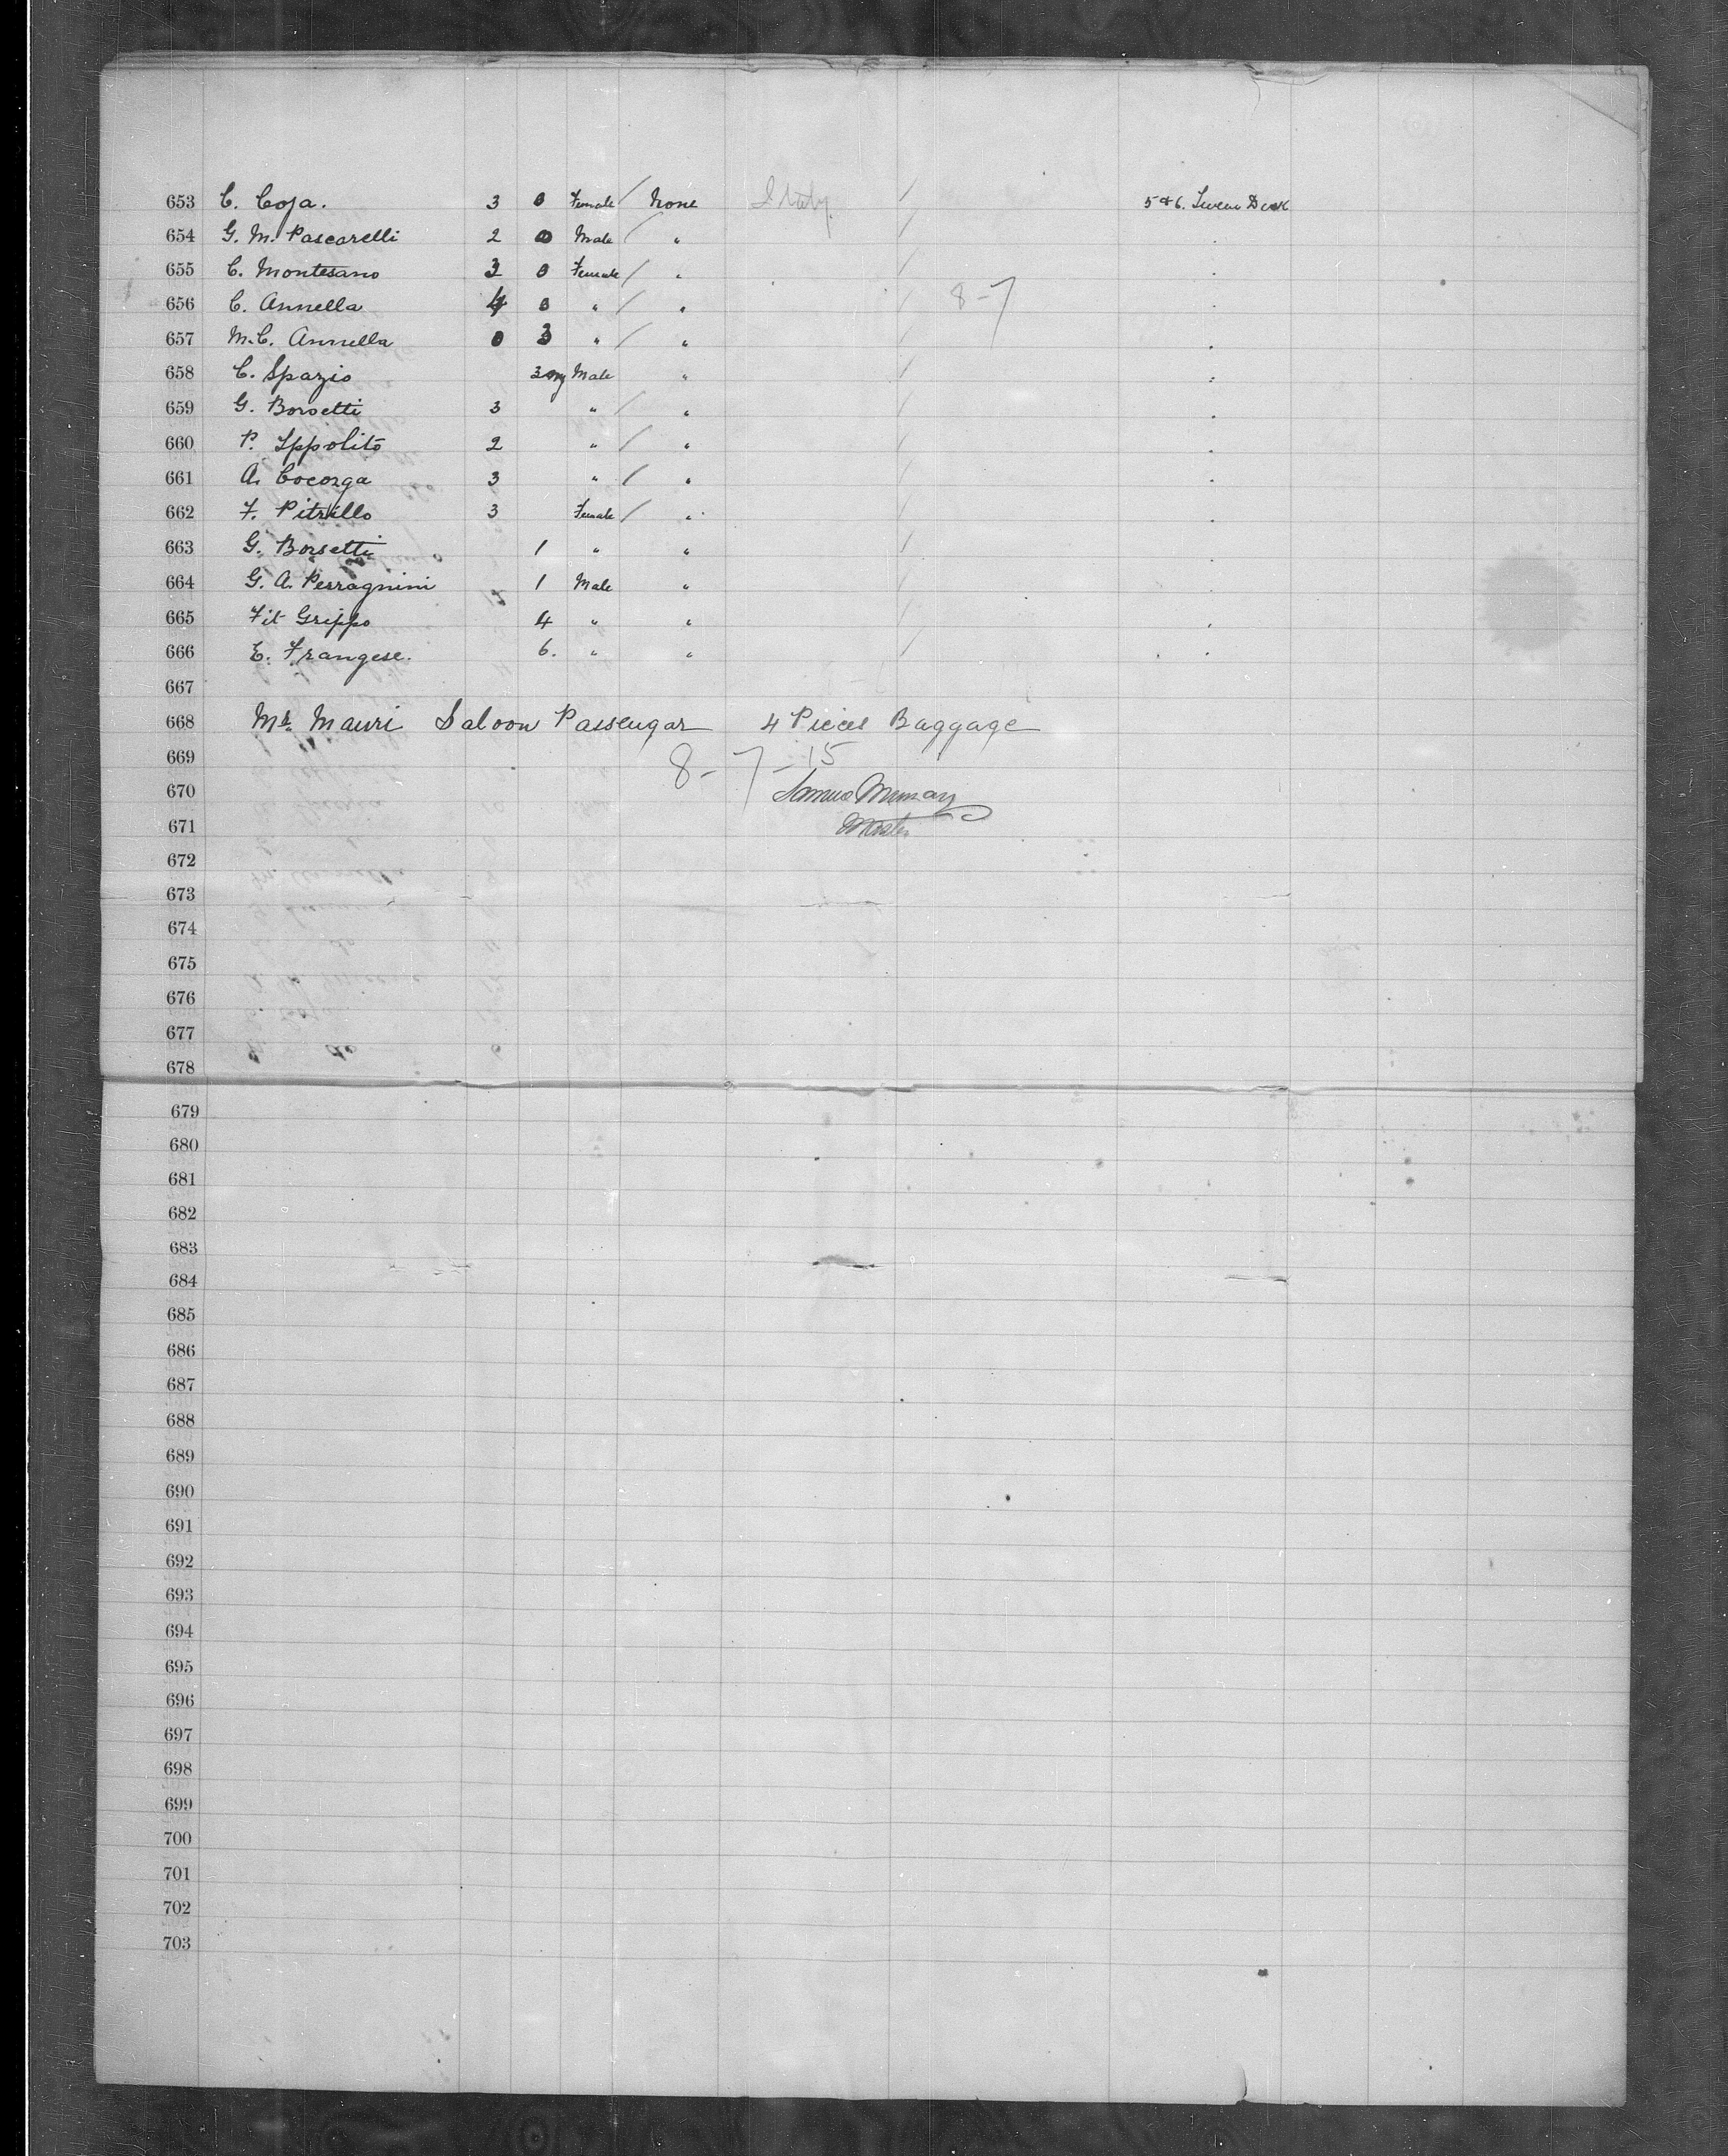 653 C. Coja. 3 0 Female / None Italy / 5 & 6. Tween Deck
654 G. M. Pascarelli 2 0 Male / " /
655 C. Montesano 3 0 Female / " /
656 C. Annella 4 0 " / " / 8-7
657 M. C. Annella 0 3 " / " /
658 C. Spazio 3 Male " /
659 G. Borsetti 3 " / " /
660 P. Ippolito 2 " / " /
661 A. Cocorga 3 " / " /
662 F. Pitrillo 3 Female / " /
663 G. Borsetti 1 " " /
664 G. A. Perragnini 1 Male " /
665 Fit Grippo 4 " " /
666 E. Frangese. 6. " " /
667
668 Mr. Mauri Saloon Passengar 4 Pieces Baggage
669 8-7-15
670 James Murray
671 Master
672
673
674
675
676
677
678
679
680
681
682
683
684
685
686
687
688
689
690
691
692
693
694
695
696
697
698
699
700
701
702
703